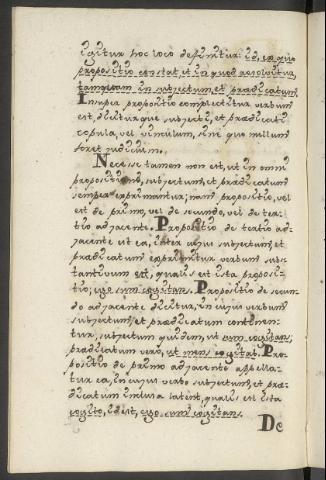 igitur hoc loco definitur: id, ex quo
propositio constat, et in quod resolvitur,
tamquam in subjectum, et prædicatum,
Insuper propositio complectitur verbum
est, diciturque subjecti, et prædicati
copula, vel vinculum, sine quo nullum
foret judicium.
Necesse tamen non est, ut in omni
propositione, subjectum, et prædicatum
semper exprimantur; nam propositio, vel
est de primo, vel de secundo, vel de ter-
tio adjacente. Propositio de tertio ad-
jacente est ea, inter cujus subjectum, et
prædicatum exprimitur verbum subs-
tantivum est, qualis est ista proposi-
tio; ego sum cogitans. Propositio de secun-
do adjacente dicitur, in cujus verbum
subjectum, et prædicatum continen-
tur, subjectum quidem, ut sum cogitans;
prædicatum vero, ut mens cogitat. Pro-
positio de primo adjacente appella-
tur ea, in cujus verbo subjectum, et præ-
dicatum inclusa latent, qualis est ista
cogito, id est, ego sum cogitans.
De